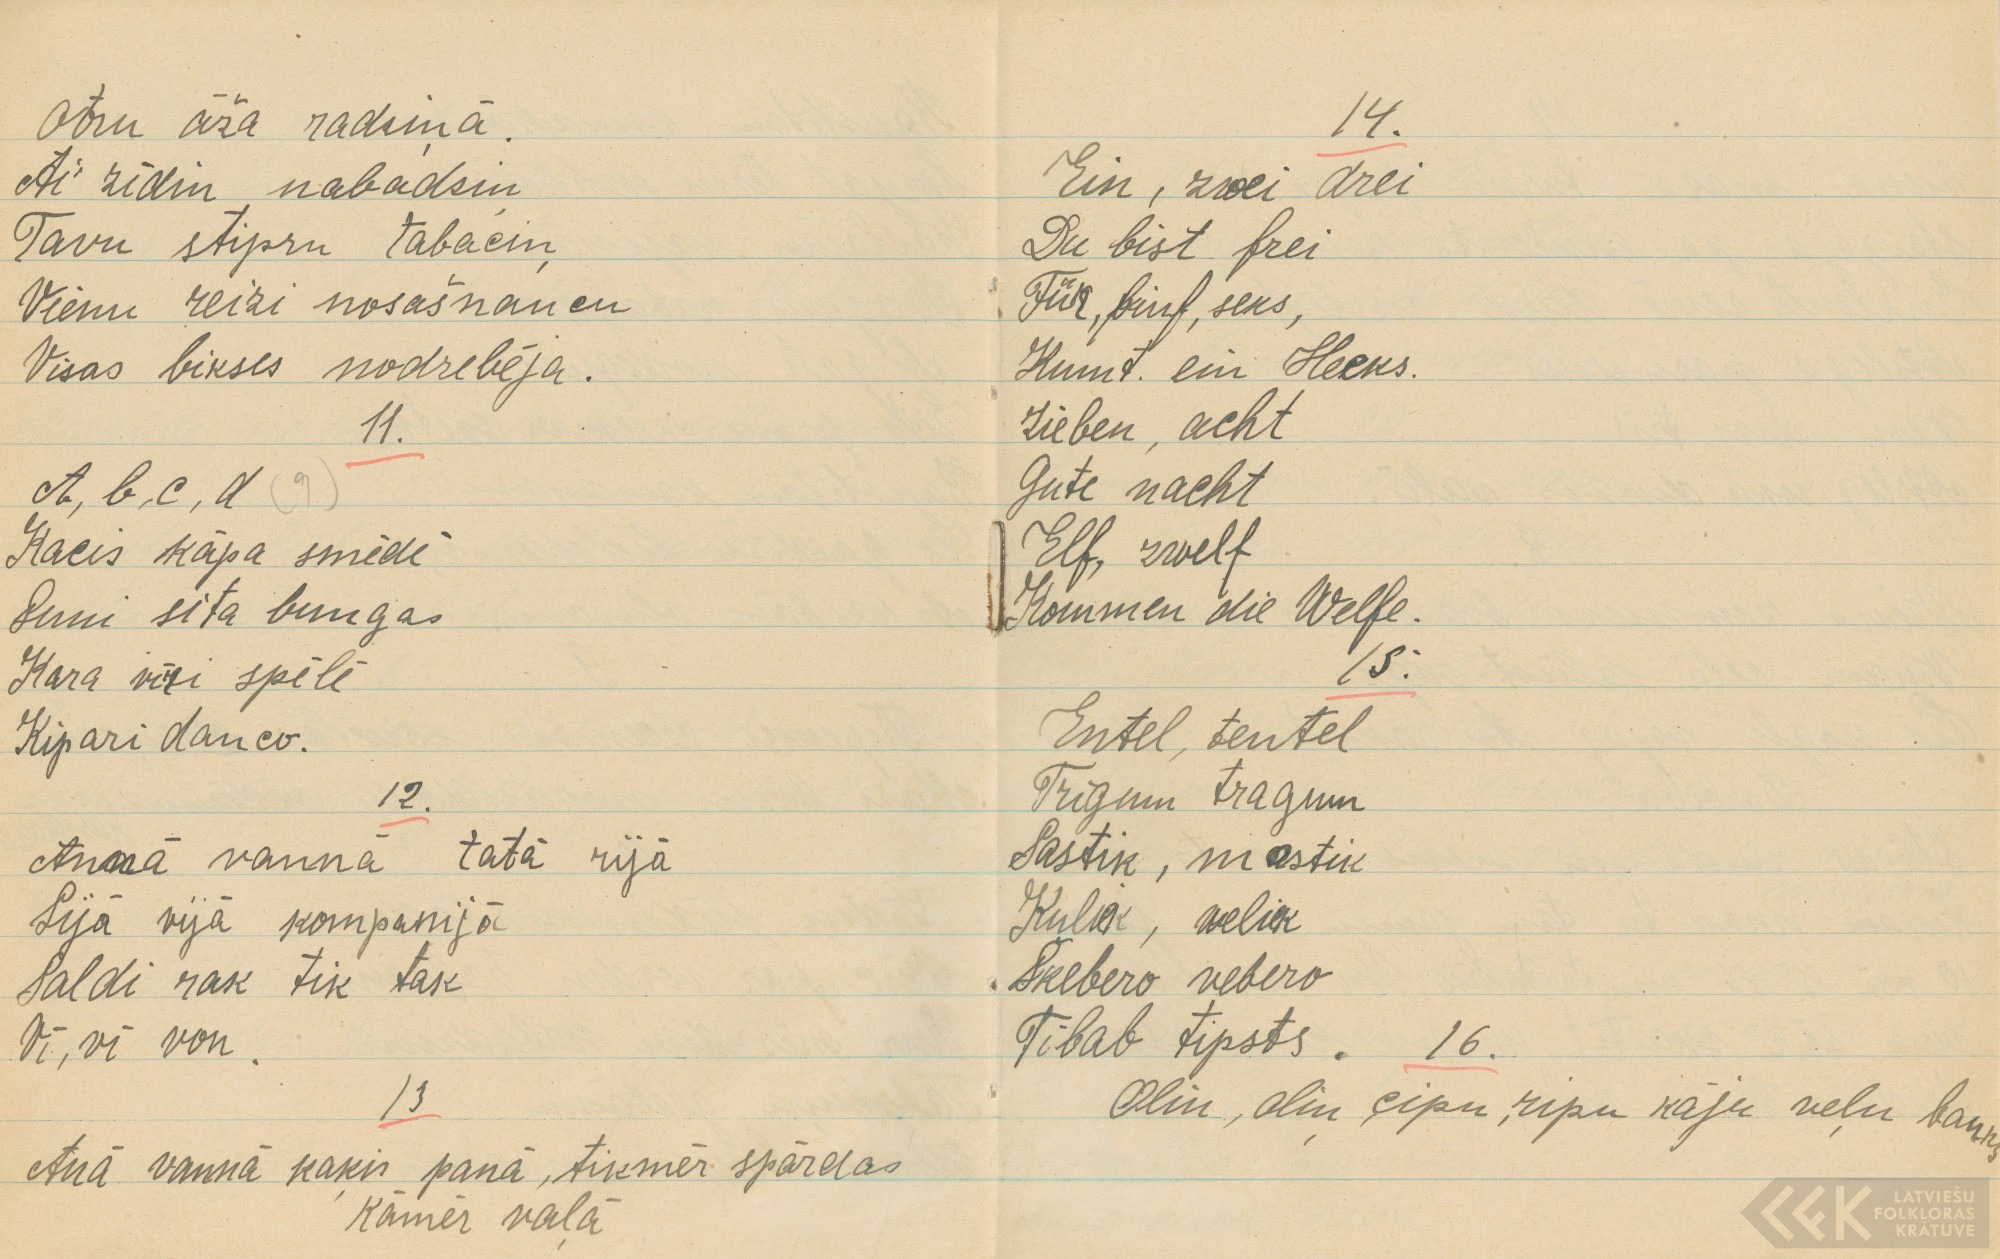 Otru āža radziņā.
Ai židin nabadziņ
Tavu stipru tabāciņ,
Vienu reizi nosašņaucu
Visas bikses nodrebēja.
11.
A, b, c, d (9.)
Kaķis kāpa smēdē
Suņi sita bungas
Kara vīri spēlē
Kipari danco.
12.
Annā vannā tatā rijā
Sijā vijā kompanijā
Saldi rak tik tak
Vī, vī von.
13
Anā vannā kaķis pannā, tikmēr spārdas
kāmēr vaļā
14.
Ein, zwei drei
Du bist frei
Für, finf, seks,
Kumt. ein Heeks.
zieben, acht
Gute nacht
Elf, zwelf
Kommen die Welfe.
15.
Entel, tentel
Trīgum tragum
Sastik, mastik
Kulik, welik
Skebero vebero
Tībab tipsts. 16.
Olin, oliņ çipu, ripu kāju veļu
LATVIEŠU
FOLKLORAS
KRĀTUVE